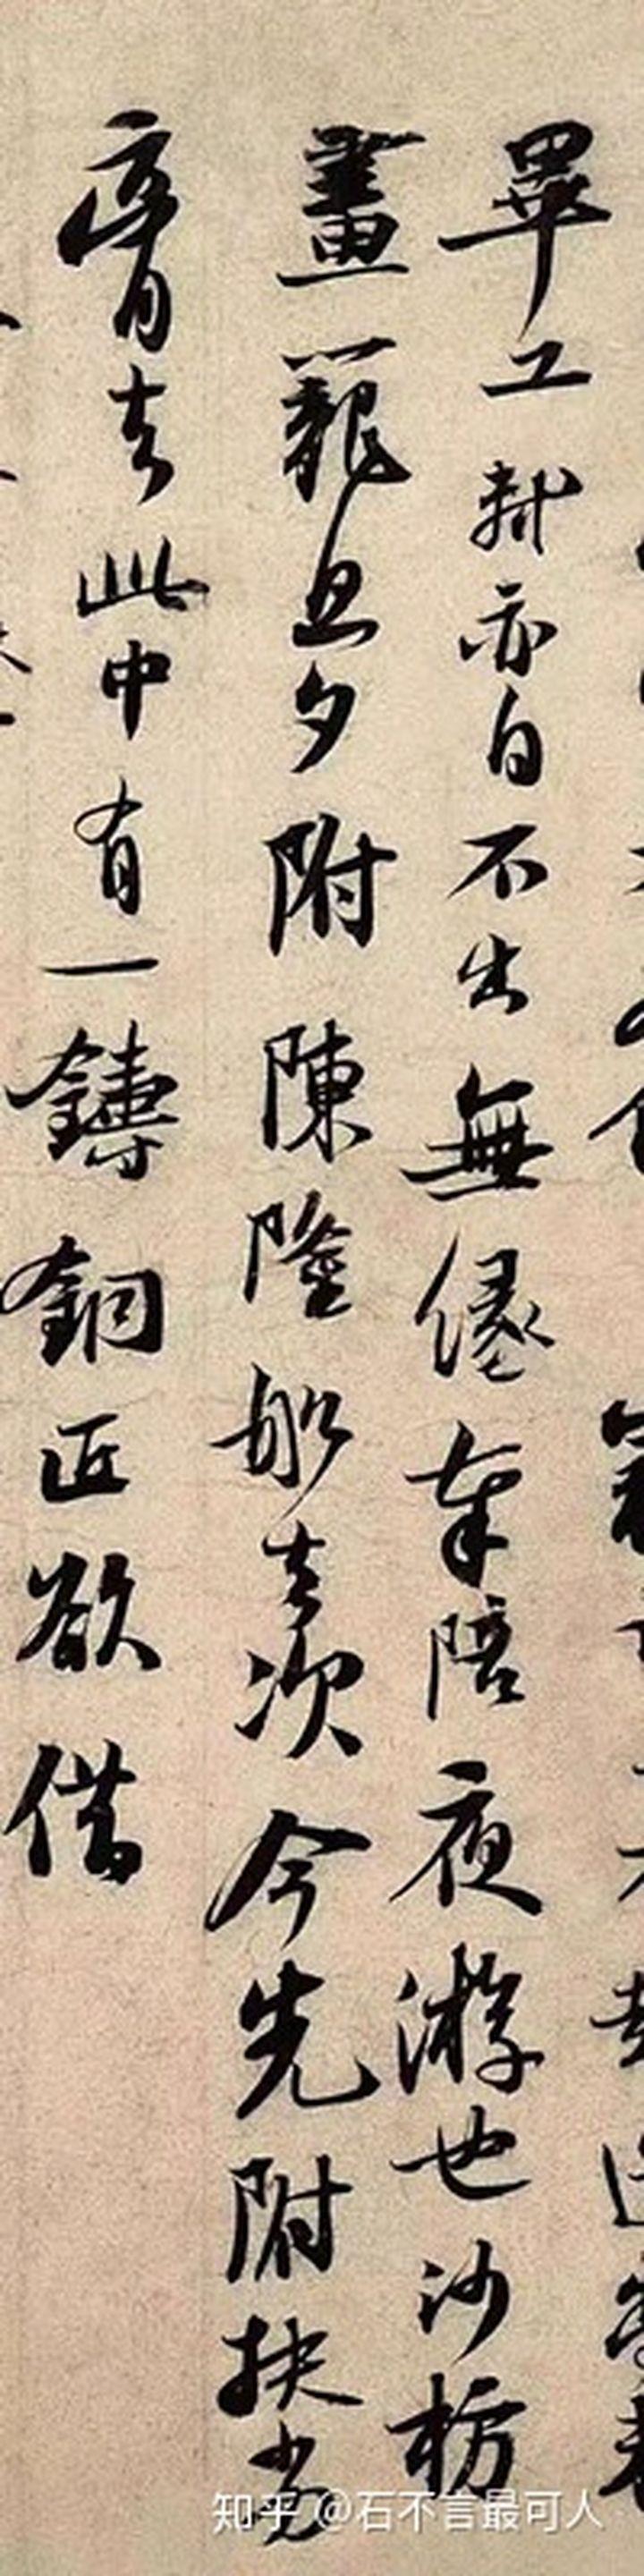 畢工軾亦自不出無緣奉陪夜游也沙枋
畫籠旦夕附陳隆船去次今先附扶劣
膏去此中有一鑄銅匠欲借
知乎 @石不言最可人